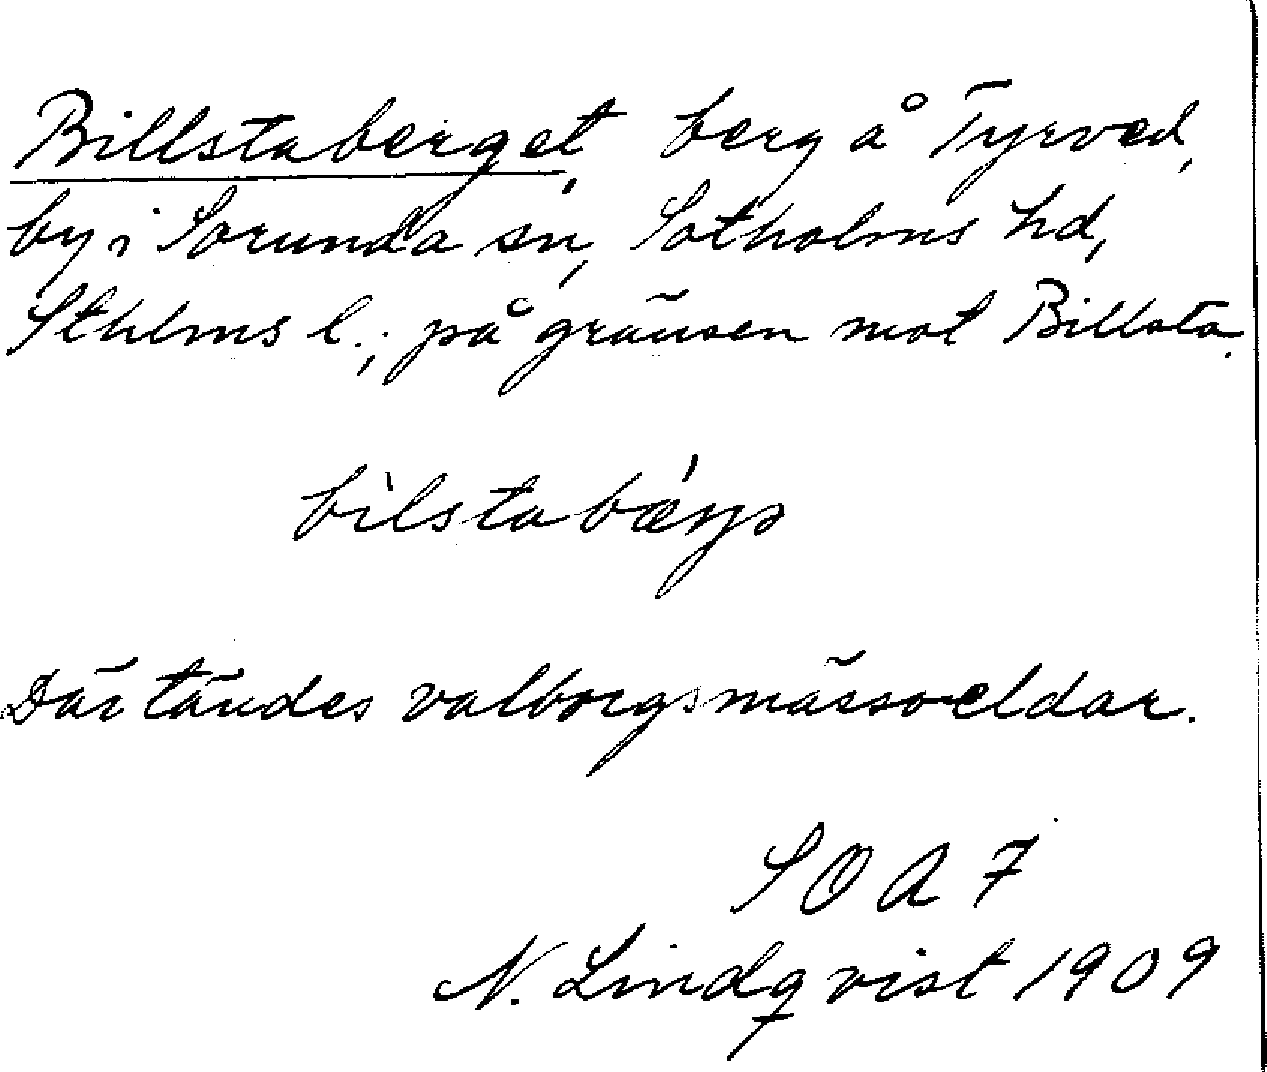 Billstaberget, berg å Tyrved,
by i Sorunda sn, Sotholms hd,
Sthlms l.; på gränsen mot Billsta.
bìlstabǽrjə
Där tändes valborgsmässoeldar.
SOA 7
N. Lindqvist 1909